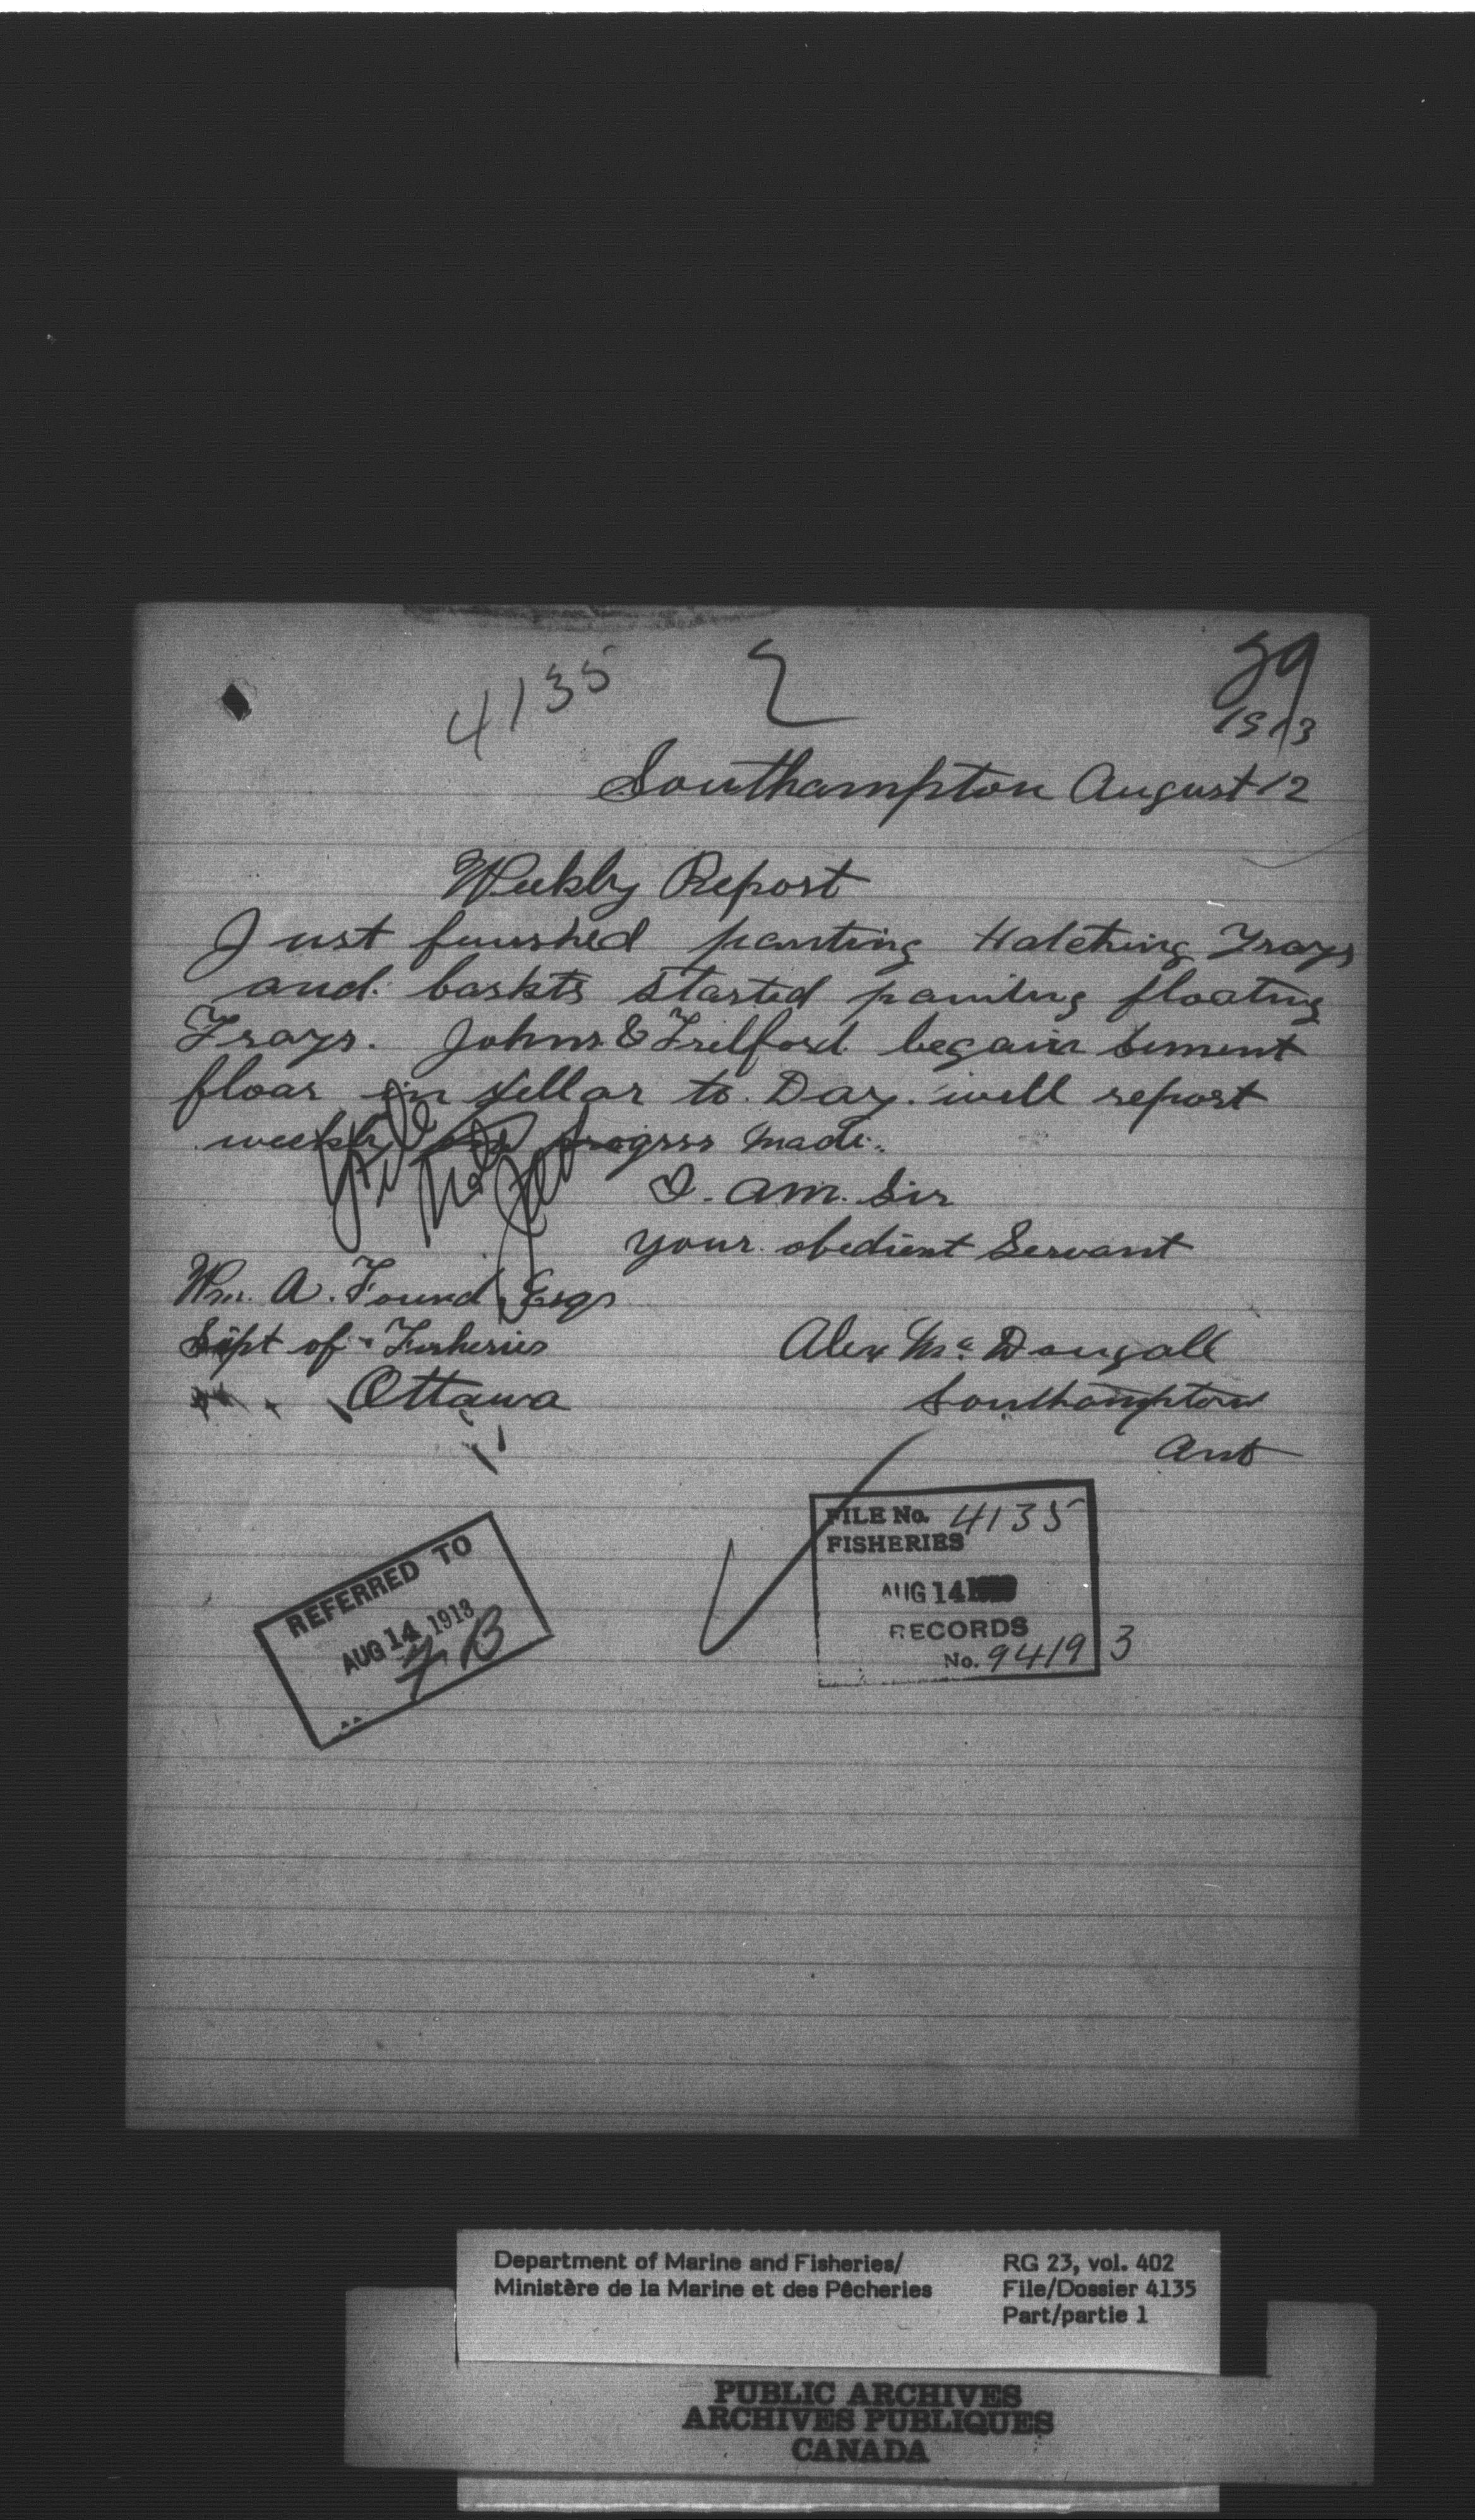 4135
2
89
1913
Southampton August 12
Weekly Report
Just finished panting Hatching Trays
and baskts started paniting floating
Trays. Johns & Trelford begain Sement
floar in sellar to. Day. will report
weekly progrss made.
I. am. Sir
your obedient Servant
Wm. A. Found Esqr
Supt of Fisheries
Ottawa
Alex Mc Dougall
Southampton
Ont
REFERRED TO
AUG 14 1913
FILE No. 4135
FISHERIES
AUG 14
RECORDS
No. 94193
Department of Marine and Fisheries/
Ministère de la Marine et des Pêcheries
RG 23, vol. 402
File/Dossier 4135
Part/partie 1
PUBLIC ARCHIVES
ARCHIVES PUBLIQUES
CANADA